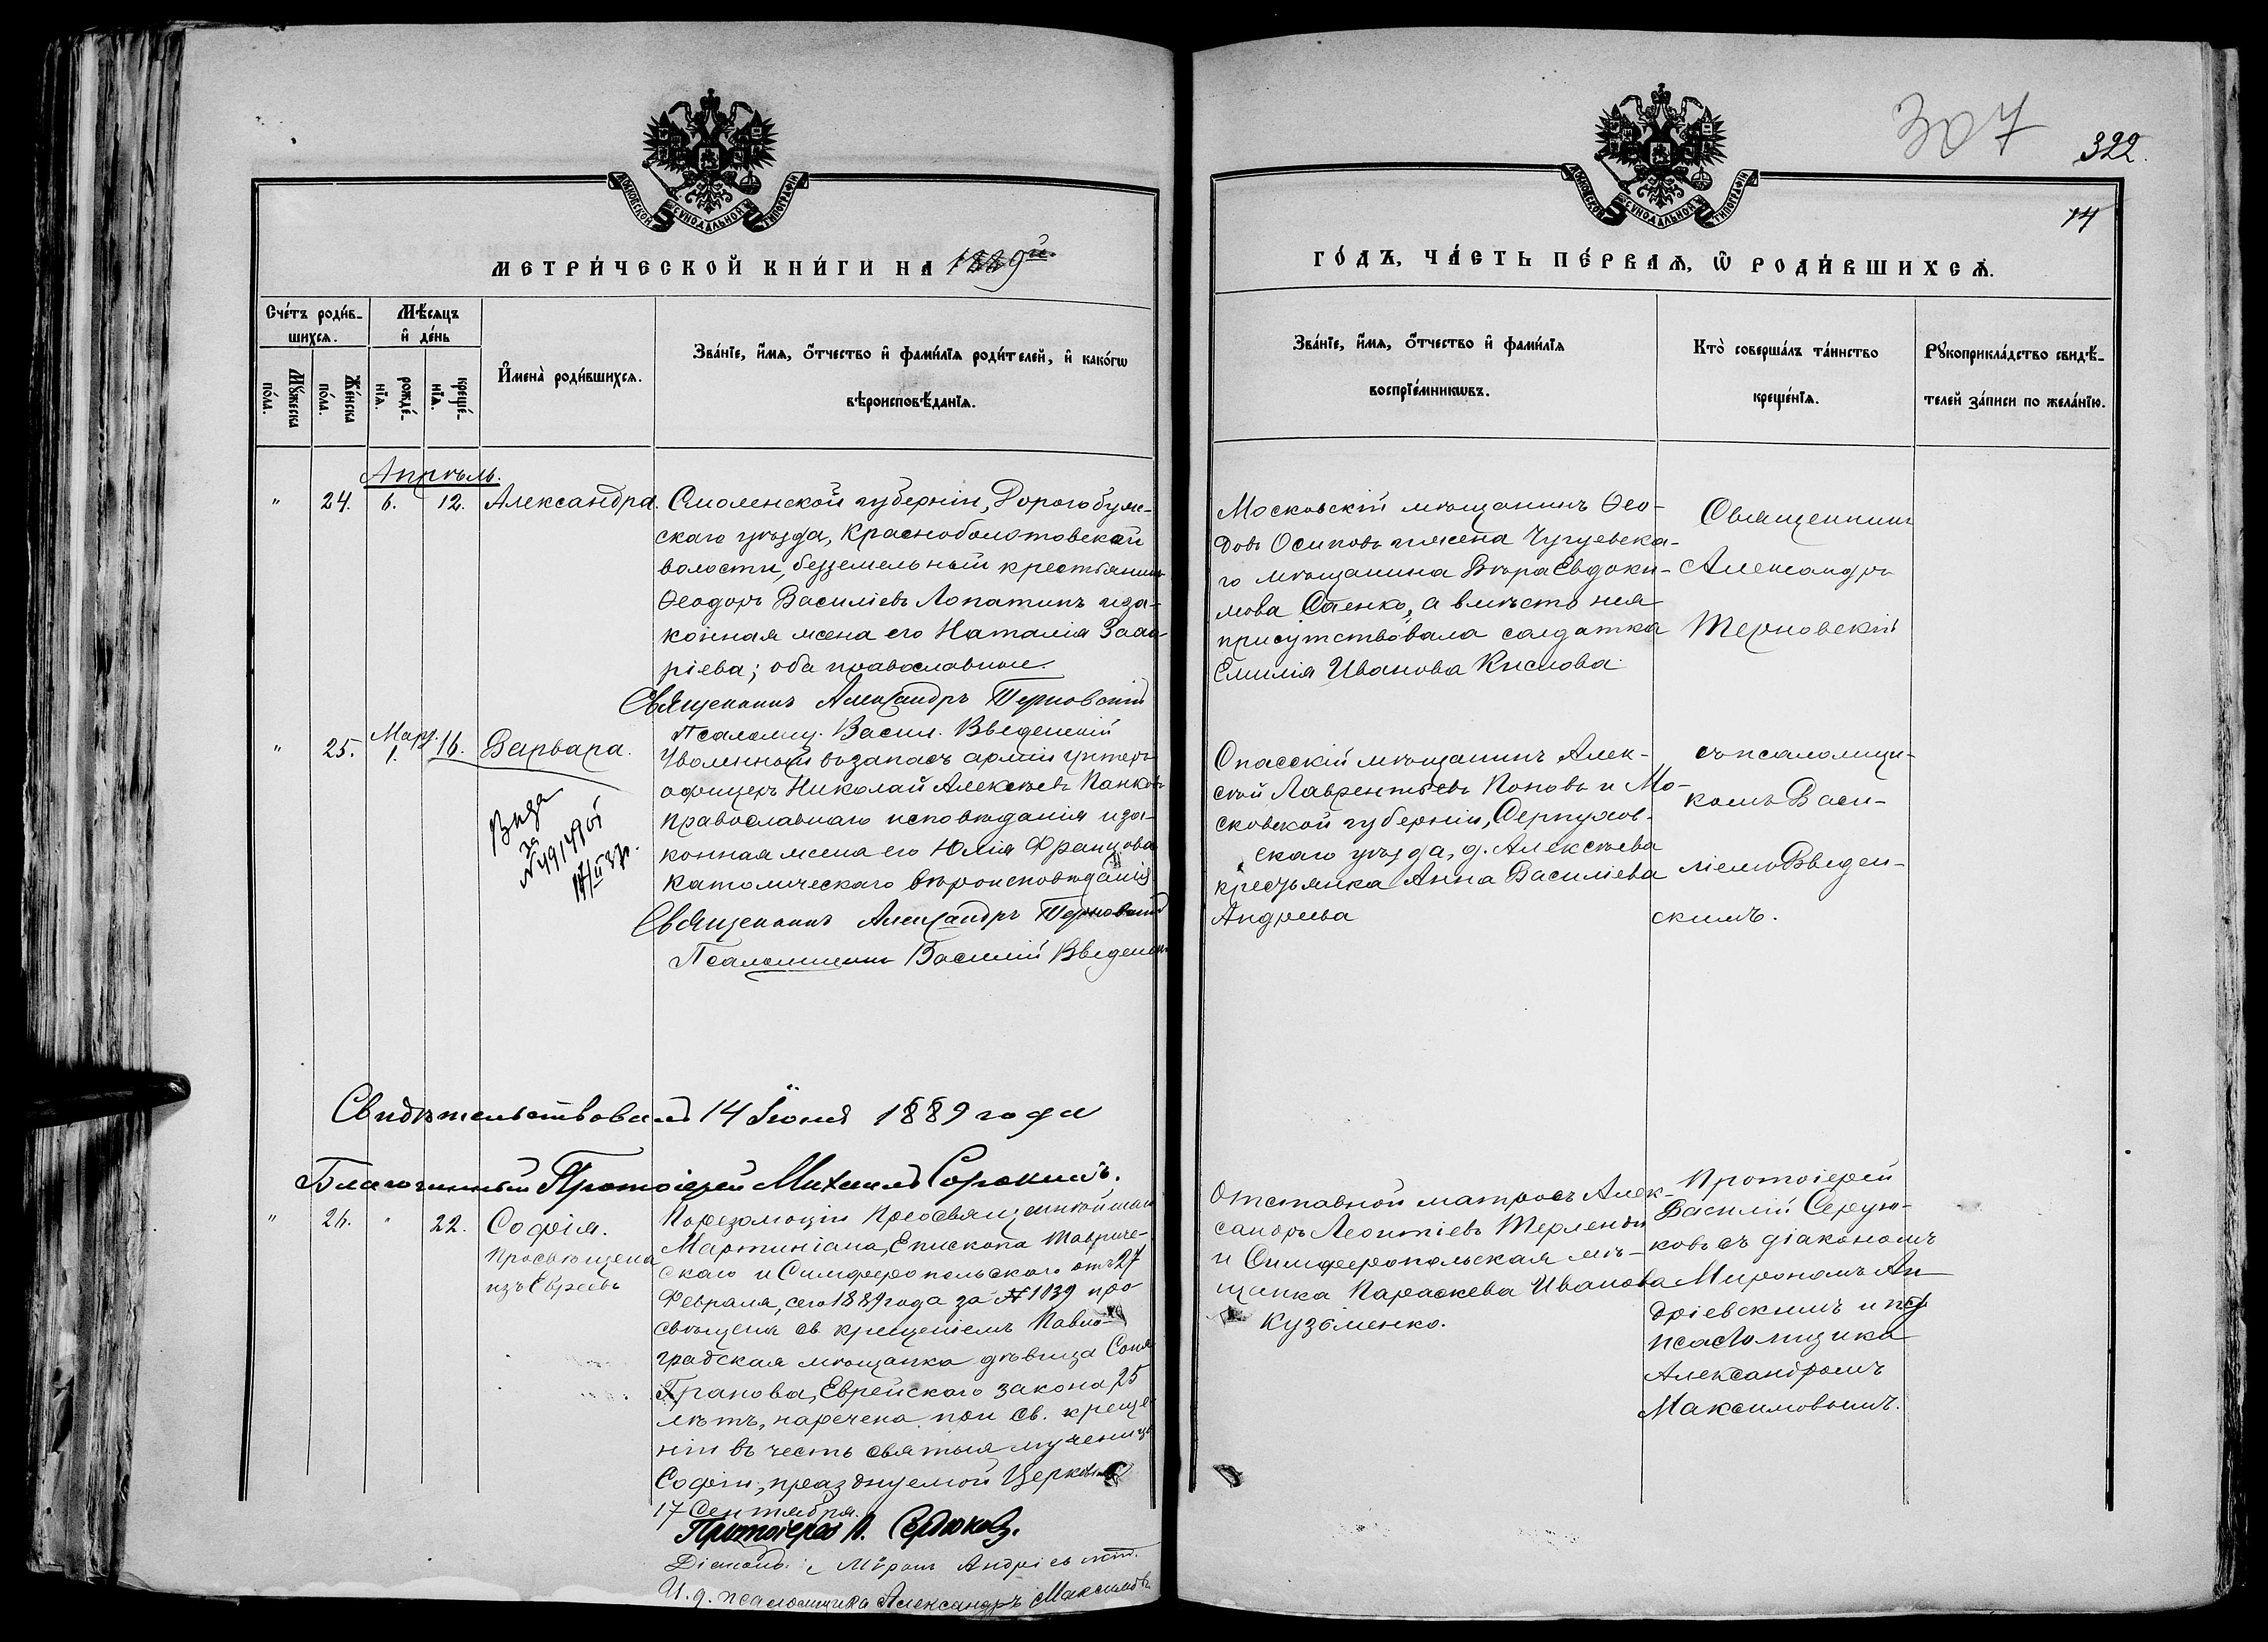 МОСКОВСКОЙ СУНОДАЛЬНОЙ ТИПОГРАФІИ
МЕТРИ́ЧЕСКОЙ КНИ́ГИ НА 1889й.
Сче́тъ роди́в-
шихсѧ.
Мѣ́сѧцъ
и҆ де́нь
Мꙋ́жеска
по́ла.
Же́нска
по́ла.
рожде́-
нїѧ.
креще́-
нїѧ.
И҆мена̀ роди́вшихсѧ.
Зва́нїе, и҆́мѧ, ѻ҆́тчество и҆ фами́лїѧ роди́телей, и҆ како́гѡ
вѣроисповѣ́данїѧ.
Апрѣль.
" 24. 6. 12. Александра.
Смоленской губерніи, Дорогобуж-
скаго уѣзда, Красноболотовской
волости, безземельный крестьянинъ
Ѳеодоръ Василіевъ Лопатинъ и за-
конная жена его Наталія Заха-
ріева; оба православные.
Священникъ Александръ Терновскій
Псаломщ. Васил. Введенскій
" 25. Мар. 1. 16. Варвара.
Уволенный въ запасъ арміи унтеръ-
офицеръ Николай Алексѣевъ Панковъ
православнаго исповѣданія и за-
конная жена его Юлія Францова
католическаго вѣроисповѣданія
Священникъ Александръ Терновскій
Псаломщикъ Василій Введенскій
за
Свидѣтельствовалъ 14 Іюня 1889 года
Благочинный Протоіерей Михаилъ Сорокинъ.
" 26. " 22. Софія.
Просвѣщена
изъ Евреевъ
По резолюціи Преосвященнѣйшаго
Мартиніана, Епископа Тавриче-
скаго и Симферопольскаго отъ 27
Февраля, сего 1889 года за № 1039 про
свѣщена св. крещеніемъ Павло-
градская мѣщанка дѣвица Соня
Гранова, Еврейскаго закона, 25
лѣтъ, наречена при св. креще-
ніи въ честь святыя мученицы
Софіи, празднуемой Церковію
17 Сентября.
Протоіерей В. Сердюковъ.
Діаконъ Миронъ Андріевскій.
И. д. псаломщика Александръ Максимовъ
307
322.
14
МОСКОВСКОЙ СУНОДАЛЬНОЙ ТИПОГРАФІИ
ГО́ДЪ, ЧА́СТЬ ПЕ́РВАѦ, Ѡ҆ РОДИ́ВШИХСѦ.
Зва́нїе, и҆́мѧ, ѻ҆́тчество и҆ фами́лїѧ
воспрїе́мникѡвъ.
Кто̀ соверша́лъ та́инство
креще́нїѧ.
Рꙋкоприкла́дство свидѣ́-
телей за́писи по жела́нїю.
Московскій мѣщанинъ Ѳео-
довъ Осиповъ и жена Чугуевска-
го мѣщанина Вѣра Евдоки-
мова Саенко, а вмѣсто нея
присутствовала солдатка
Емилія Иванова Кислова
Священникъ
Александръ
Терновскій
Спасскій мѣщанинъ Алек-
сѣй Лаврентьевъ Поповъ и Мо-
сковской губерніи, Серпухов-
скаго уѣзда, д. Алексѣева
крестьянка Анна Василіева
Андреева
съ псаломщи-
комъ Васи-
ліемъ Введен-
скимъ.
Отставной матросъ Алек-
сандръ Леонтіевъ
и Симферопольская мѣ-
щанка Параскева Иванова
Кузьменко.
Протоіерей
Василій Сердю-
ковъ съ діакономъ
Мирономъ Ан-
дріевскимъ и
псаломщика
Александромъ
Максимовымъ.